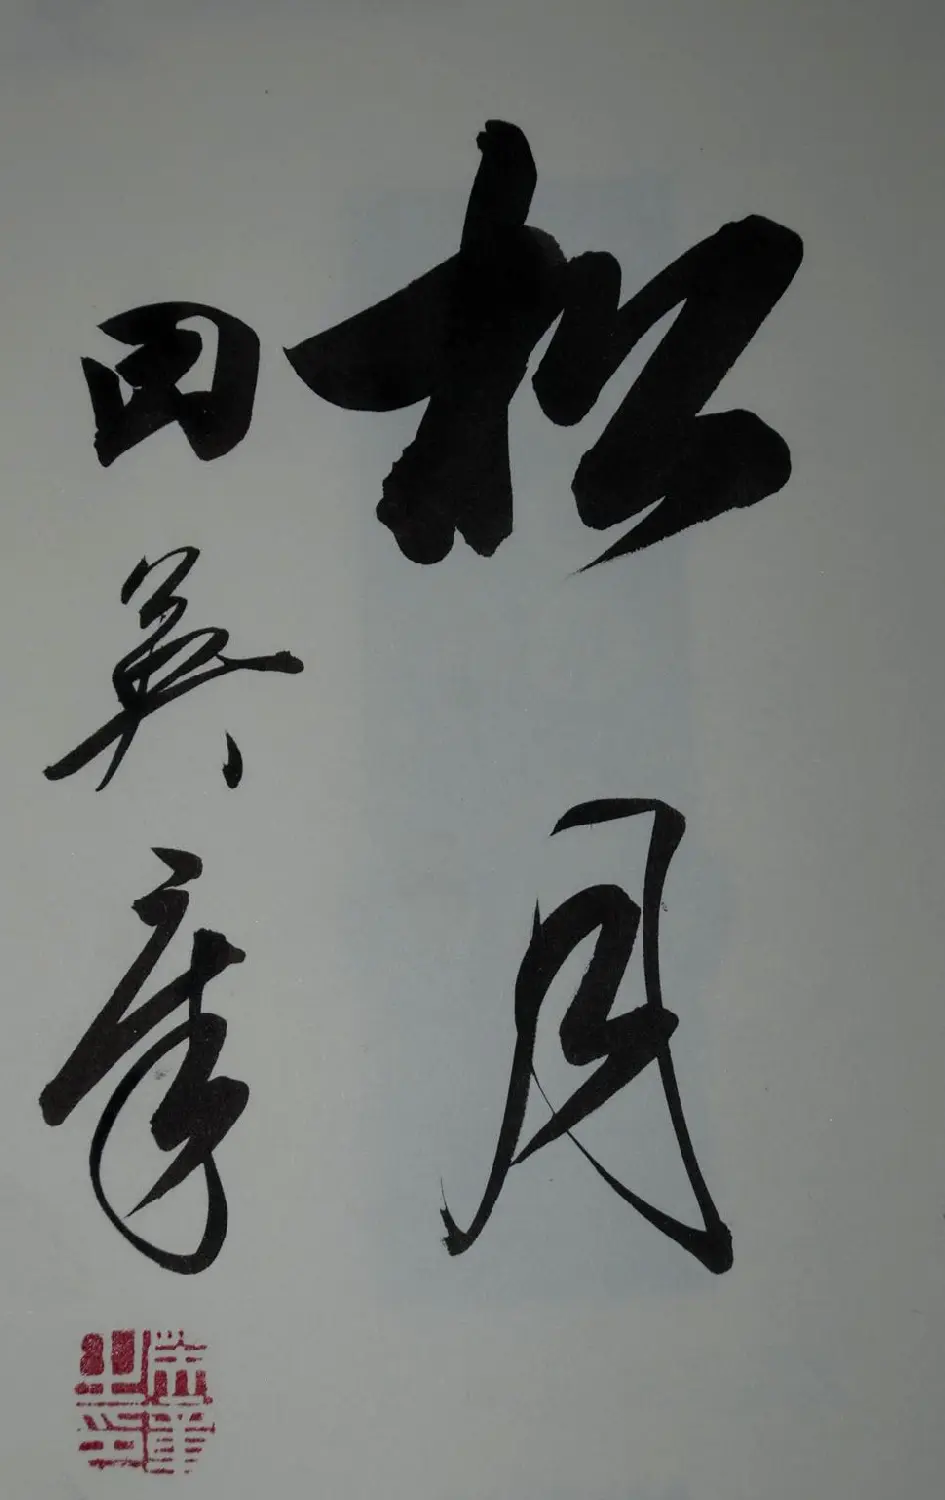 松月
田英章